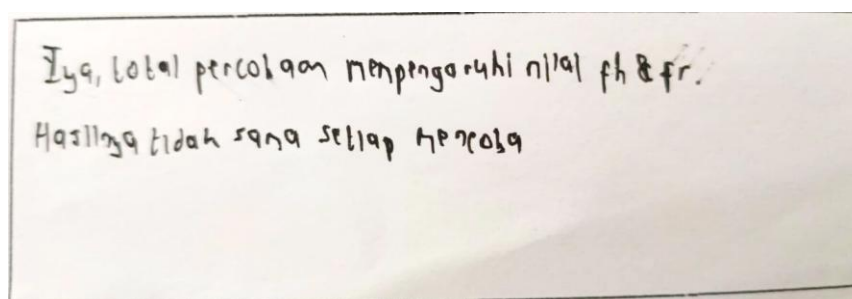 Iya, total percobaan menpengaruhi nilai fh & fr.
Hasilnya tidak sama setiap mencoba